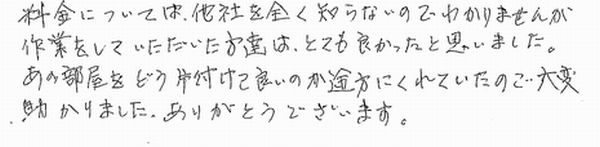 料金については、他社を全く知らないのでわかりませんが
作業をしていただいた方達は、とても良かったと思いました。
あの部屋をどう片付けて良いのか途方にくれていたので大変
助かりました。ありがとうございます。